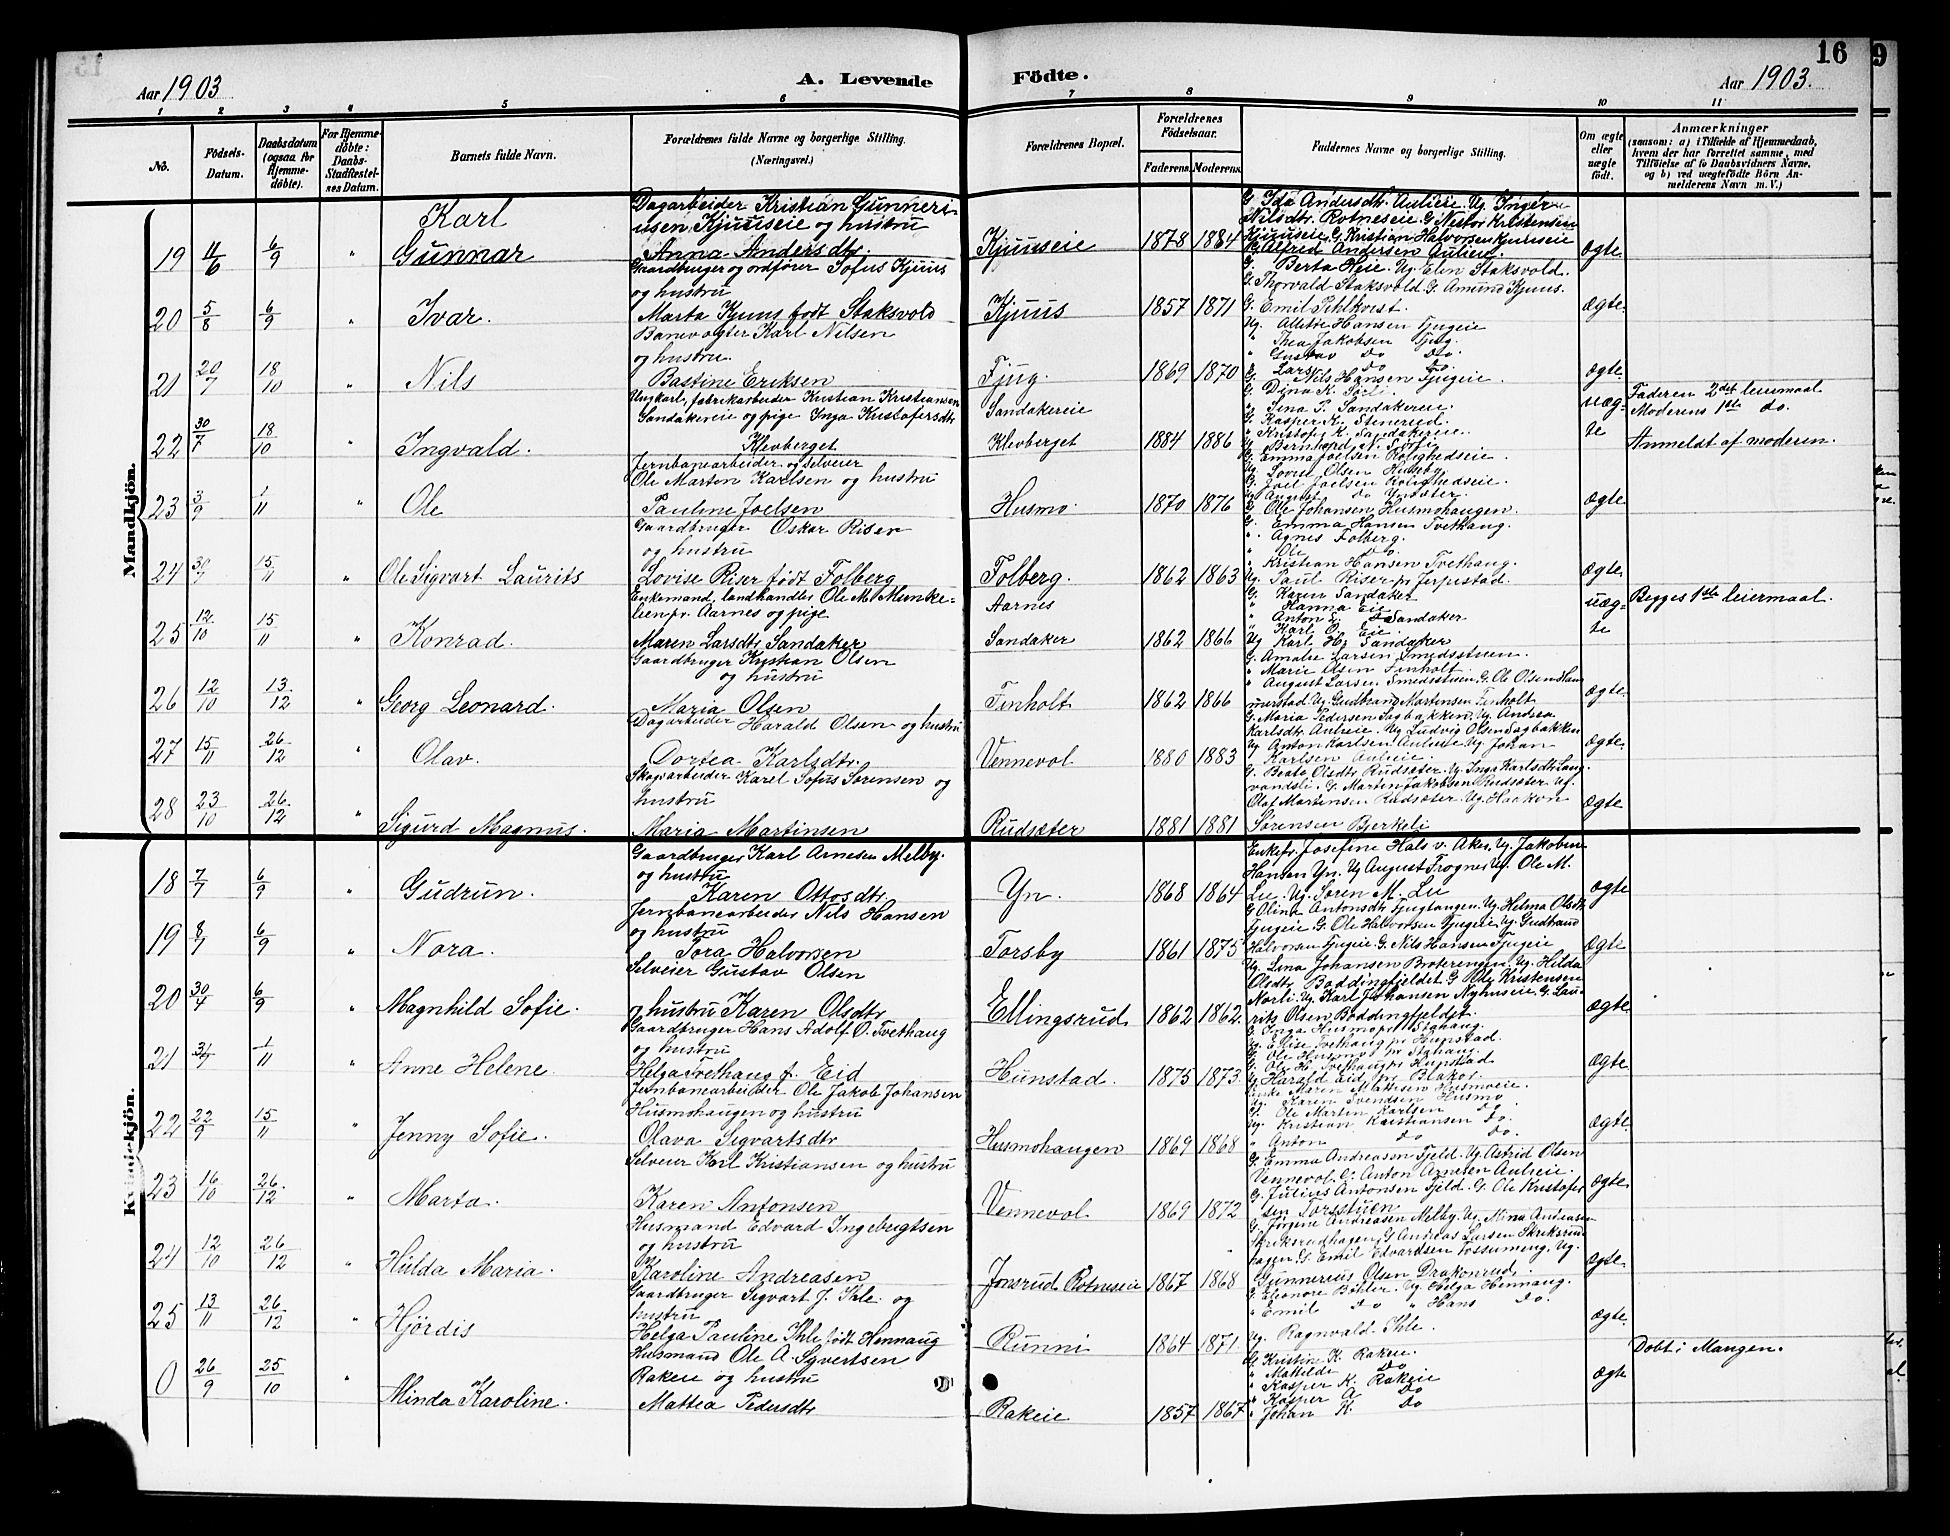 16
9
Aar 1903
A. Levende
Födte.
Aar 1903.
1 2 3 4 5 6 7 8 9 10 11
No.
Födsels-Datum.
Daabsdatum (ogsaa for Hjemme-döbte).
For Hjemme-döbte: Daabs-Stadfæstel-ses Datum.
Barnets fulde Navn.
Forældrenes fulde Navne og borgerlige Stilling. (Næringsvei.)
Forældrenes Bopæl.
Forældrenes Födselsaar.
Faderens. Moderens.
Faddernes Navne og borgerlige Stilling.
Om ægte eller uægte födt.
Anmærkninger
(saasom: a) i Tilfælde af Hjemmedaab, hvem der har forrettet samme, med Tilföielse af to Daabsvidners Navne, og b) ved uægtefödte Börn An-melderens Navn m. V.)
Mandkjön.
19 11/6 6/9 " Karl Gunnar
Dagarbeider Kristian Gunneri-
usen Kjuuseie og hustru
Anna Andersdtr.
Kjuuseie 1878 1884
G Ida Andersdtr Aulieie. Ug. Inger
Nilsdtr. Rotneseie G Nestor Kristensen
Kjuuseie. G. Kristian Halvorsen Kjuuseie
Alfred Andersen Aulieie.
ægte
20 5/8 6/9 " Ivar.
Gaardbruger og ordfører Sofus Kjuus
og hustru
Marta Kjuus født Staksvold
Kjuus 1857 1871
G. Berta Heie. Ug. Elen Staksvold.
G. Thorvald Staksvold. G. Amund Kjuus.
G. Emil Pehlkvist.
Ægte.
21 20/7 18/10 " Nils
Banevogter Karl Nilsen
og hustru.
Bastine Eriksen
Fjug. 1869 1870
Ug. Allette Hansen Fjugeie
" Thea Jakobsen Fjug.
" Gustav do do.
" Lars do do
Nils Hansen Fjugeie.
ægte.
22 30/7 18/10 " Ingvald.
Ungkarl, fabrikarbeider Kristian Kristiansen
Sandakereie og pige Inga Kristofersdtr
Klevberget
Sandakereie
Klevberget 1884 1886
G. Dina K. Sörli.
" Lina P. Sandakereie.
G. Kasper K. Stenerud.
" Kristofer K. Sandakereie.
Ug Bernhard N. Sörli.
uæg-
te
Faderen 2det leiermaal
Moderens 1ste do.
Anmeldt af moderen.
23 3/9 1/11 Ole
Jernbanearbeider og selveier
Ole Marton Karlsen og hustru
Pauline Joelsen
Husmo 1870 1876
G. Emma Joelsen Rolighedseie.
Ug. Lovise Olsen Huseby
G. Joel Joelsen Rolighedseie.
Ug August do
G Ole Johansen Husmohaugen.
ægte.
24 30/7 15/11 " Ole Sigvart Laurits
Gaardbruger Oskar Riser
og hustru
Lovise Riser født Folberg
Folberg. 1862 1863
G. Emma Hansen Tvethaug.
" Agnes Folberg.
" Ole do.
" Kristian Hansen Tvethaug.
Ug. Paul Riser pr Jerpestad.
ægte.
25 12/10 15/11 " Konrad.
Enkemand, landhandler Ole M. Munke-
lien pr. Aarnes og pige
Maren Larsdtr Sandaker
Aarnes
Sandaker 1862 1866
G. Karen Sandaker
" Hanna Eie
" Anton L. Sandaker
" Karl O. Eie.
Ug Karl Hs Sandaker
uæg-
te
Begges 1ste leiermaal.
26 12/10 13/12 " Georg Leonard.
Gaardbruger Kristian Olsen
og hustru
Maria Olsen
Finholt 1862 1866
G. Amalie Larsen Smedsstuen.
" Marie Olsen Finholt.
" August Larsen Smedsstuen. G. Ole Olsen Ham
merstad Ug. Gudbrand Martensen Finholt
ægte.
27 15/11 26/12 " Olav.
Dagarbeider Harald Olsen og hustru
Dortea Karlsdtr.
Vennevol 1880 1883
G. Maria Pedersen Sagbakken. Ug. Andrea
Karlsdtr. Aulieie. Ug Ludvig Olsen Sagbakken
Ug. Anton Karlsen Aulieie Ug. Johan
Karlsen Aulieie.
Ægte.
28 23/10 26/12 " Sigurd Magnus.
Skovarbeider Karel Sofus Sørensen og
hustru
Maria Martinsen
Rudsæter 1881 1881
G. Beate Olsdtr Rudsæter. Ug. Inga Karlsdtr Lang
vandsli. G. Martin Jakobsen Rudsæter. Ug.
Olaf Martinsen Rudsæter. Ug. Haakon
Sørensen Bjerkeli
ægte
Kvindekjön.
18 7/7 6/9 " Gudrun.
Gaardbruger Karl Arnesen Melby.
og hustru
Karen Ottosdtr
Yn. 1868 1864
Enkefr. Josefine Hals v. Aker. Ug. Jakobine
Hansen Yn. Ug August Frogner. Ug. Ole M.
Lie. Ug. Søren M. Lie
ægte
19 8/7 6/9 " Nora.
Jernbanearbeider Nils Hansen
og hustru
Tora Halvorsen
Torsby 1861 1875
G. Olina Antonsdtr Fjugtangen. Ug. Helma Olsdtr
Fjugeie. G. Ole Halvorsen Fjugeie. Ug. Gudbrand
Halvorsen Fjugeie G. Nils Hansen Fjugeie
Ægte
20 30/4 6/9 " Magnhild Sofie.
Selveier Gustav Olsen
og hustru Karen Olsdtr
Ellingsrud 1862 1862.
Ug. Lina Johansen Braterengen. Ug. Hilda
Olsdtr Baddingfjeldet. G Ole Kristensen
Norli. Ug. Karl Johansen Nyhuseie. G. Lau-
rits Olsen Baddingfjeldet.
Ægte
21 31/7 1/11 " Anne Helene.
Gaardbruger Hans Adolf O. Tvethaug
og hustru
Helga Tvethaug f. Eid
Hunstad. 1875 1873.
G. Inga Husmo pr Stahaug.
Ug. Elise Tvethaug pr Hunstad.
G. Ole Husmo pr Stahaug.
G. Ole H. Tvethaug pr Hunstad
Ug Harald Eid pr Blaker.
ægte
22 22/9 15/11 " Jenny Sofie.
Jernbanearbeider Ole Jakob Johansen
Husmohaugen og hustru
Olava Sigvartsdtr
Husmohaugen 1869 1868
Enke Maren Mattisen Husmoeie.
Ug. Karen Svendsen Husmo
G. Ole Martin Karlsen do
Ug. Kristian Kristiansen do.
" Anton do do.
ægte.
23 16/10 26/12 " Marta.
Selveier Karl Kristiansen og hustru
Karen Antonsen
Vennevol 1869 1872
G. Emma Andreasen Fjeld. Ug. Astrid Olsen
Vennevol. G. Anton Arnesen Aulieie.
G. Julius Antonsen Fjeld. G. Ole Kristofer
sen Torsstuen
ægte.
24 12/10 26/12 " Hilda Maria.
Husmand Edvard Ingebrigtsen
og hustru
Karoline Andreasen
Jonsrud Rotneseie 1867 1868
G. Jørgine Andreasen Melby. Ug. Mina Andreasen
Skriksrudhagen. G Andreas Larsen Skriksrud
hagen. G. Emil Edvardsen Fossumeng. Ug.
Gunnerius Olsen Drakonrud.
ægte.
25 13/11 26/12 " Hjördis
Gaardbruger Sigvart J. Ihle. og
hustru
Helga Pauline Ihle født Hennaug
Runni 1864 1871.
G. Eleonore Böhler. Ug. Helga Hennaug.
" Emil do " Hans do.
Ug. Ragnvald Ihle.
ægte.
0 26/9 25/10 " Minda Karoline.
Husmand Ole A. Syvertsen
Rakeie og hustru
Mattea Pedersdtr
Rakeie 1857 1867
G Kristin K. Rakeie.
" Mathilde do
" Kasper K. Rakeie
" Kasper A do
" Johan K. do
ægte
Døbt i Mangen.